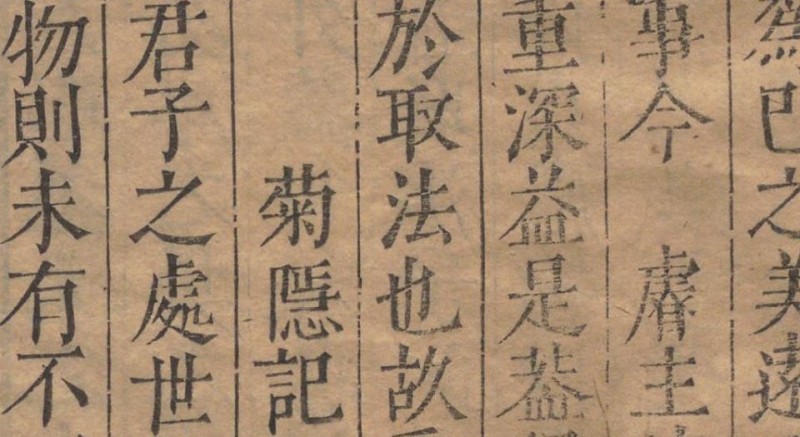 已之美遠
事今　睿主
重深益是葢
於取法也故
菊隱記
君子之處世
物則未有不